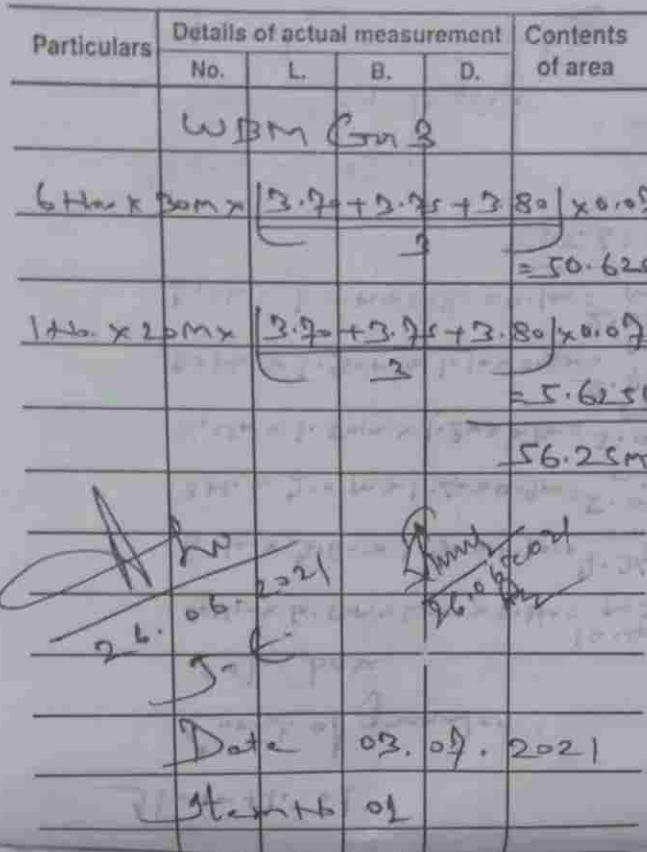 Particulars Details of actual measurement Contents of area
No. L. B. D.
WBM Gr 3
6 No x 30m x (3.70 + 3.75 + 3.80) x 0.07
3
= 50.625
1 No. x 20m x (3.70 + 3.75 + 3.80) x 0.07
3
= 5.6250
56.25m
26.06.2021
26.06.2021
J.E
Date 03.07.2021
Item No 01